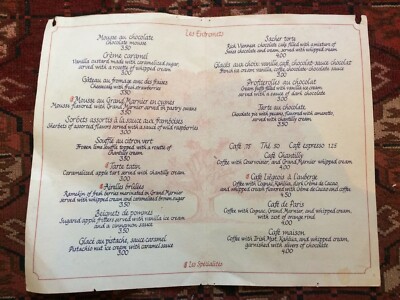 Les Entremets
Mousse au chocolate
Chocolate mousse
3.50
Crème caramel
Vanilla custard made with caramelized sugar,
served with a rosette of whipped cream
3.00
Gâteau au fromage avec des fraises
Cheesecake with fresh strawberries
3.50
Mousse au Grand Marnier en cygnes
Mousse flavored with Grand Marnier served in pastry swans
3.50
Sorbets assortis à la sauce aux framboises
Sherbets of assorted flavors served with a sauce of wild raspberries
2.00
Soufflé au citron vert
Frozen lime soufflé topped with a rosette of
Chantilly cream
3.50
Tarte tatin
Caramelized apple tart served with chantilly cream
3.50
Airelles brûlées
Ramekin of fresh berries marinated in Grand Marnier
served with whipped cream and caramelized brown sugar
3.50
Beignets de pommes
Sugared apple fritters served with vanilla ice cream
and a cinnamon sauce
3.50
Glacé au pistache, sauce caramel
Pistachio nut ice cream with caramel sauce
3.00
Sacher torte
Rich Viennese chocolate cake filled with apricot
and served with whipped cream
4.00
Glacés aux choix: vanille café, chocolate-sauce chocolat
French ice cream, vanilla, coffee, chocolate chocolate sauce
3.00
Profiterolles au chocolat
Cream puffs filled with vanilla ice cream,
served with a sauce of dark chocolate
3.00
Tarte au chocolat
Chocolate pie, flavored with almonds, served with
whipped cream
3.50
Café .75 Thé .50 Café espresso 1.25
Café Chantilly
Coffee with Courvoisier, and Grand Marnier, whipped cream
4.00
Café Liégeois à l'auberge
Coffee with Cognac, Kahlúa, dark Crème de Cacao
and whipped cream flavored with Crème de Cacao and coffee
4.50
Café de Paris
Coffee with Cognac, Grand Marnier, and whipped cream,
with zest of orange rind
4.00
Café maison
Coffee with Irish Mist, Kahlúa, and whipped cream,
garnished with slivers of chocolate
4.00
Les Spécialités